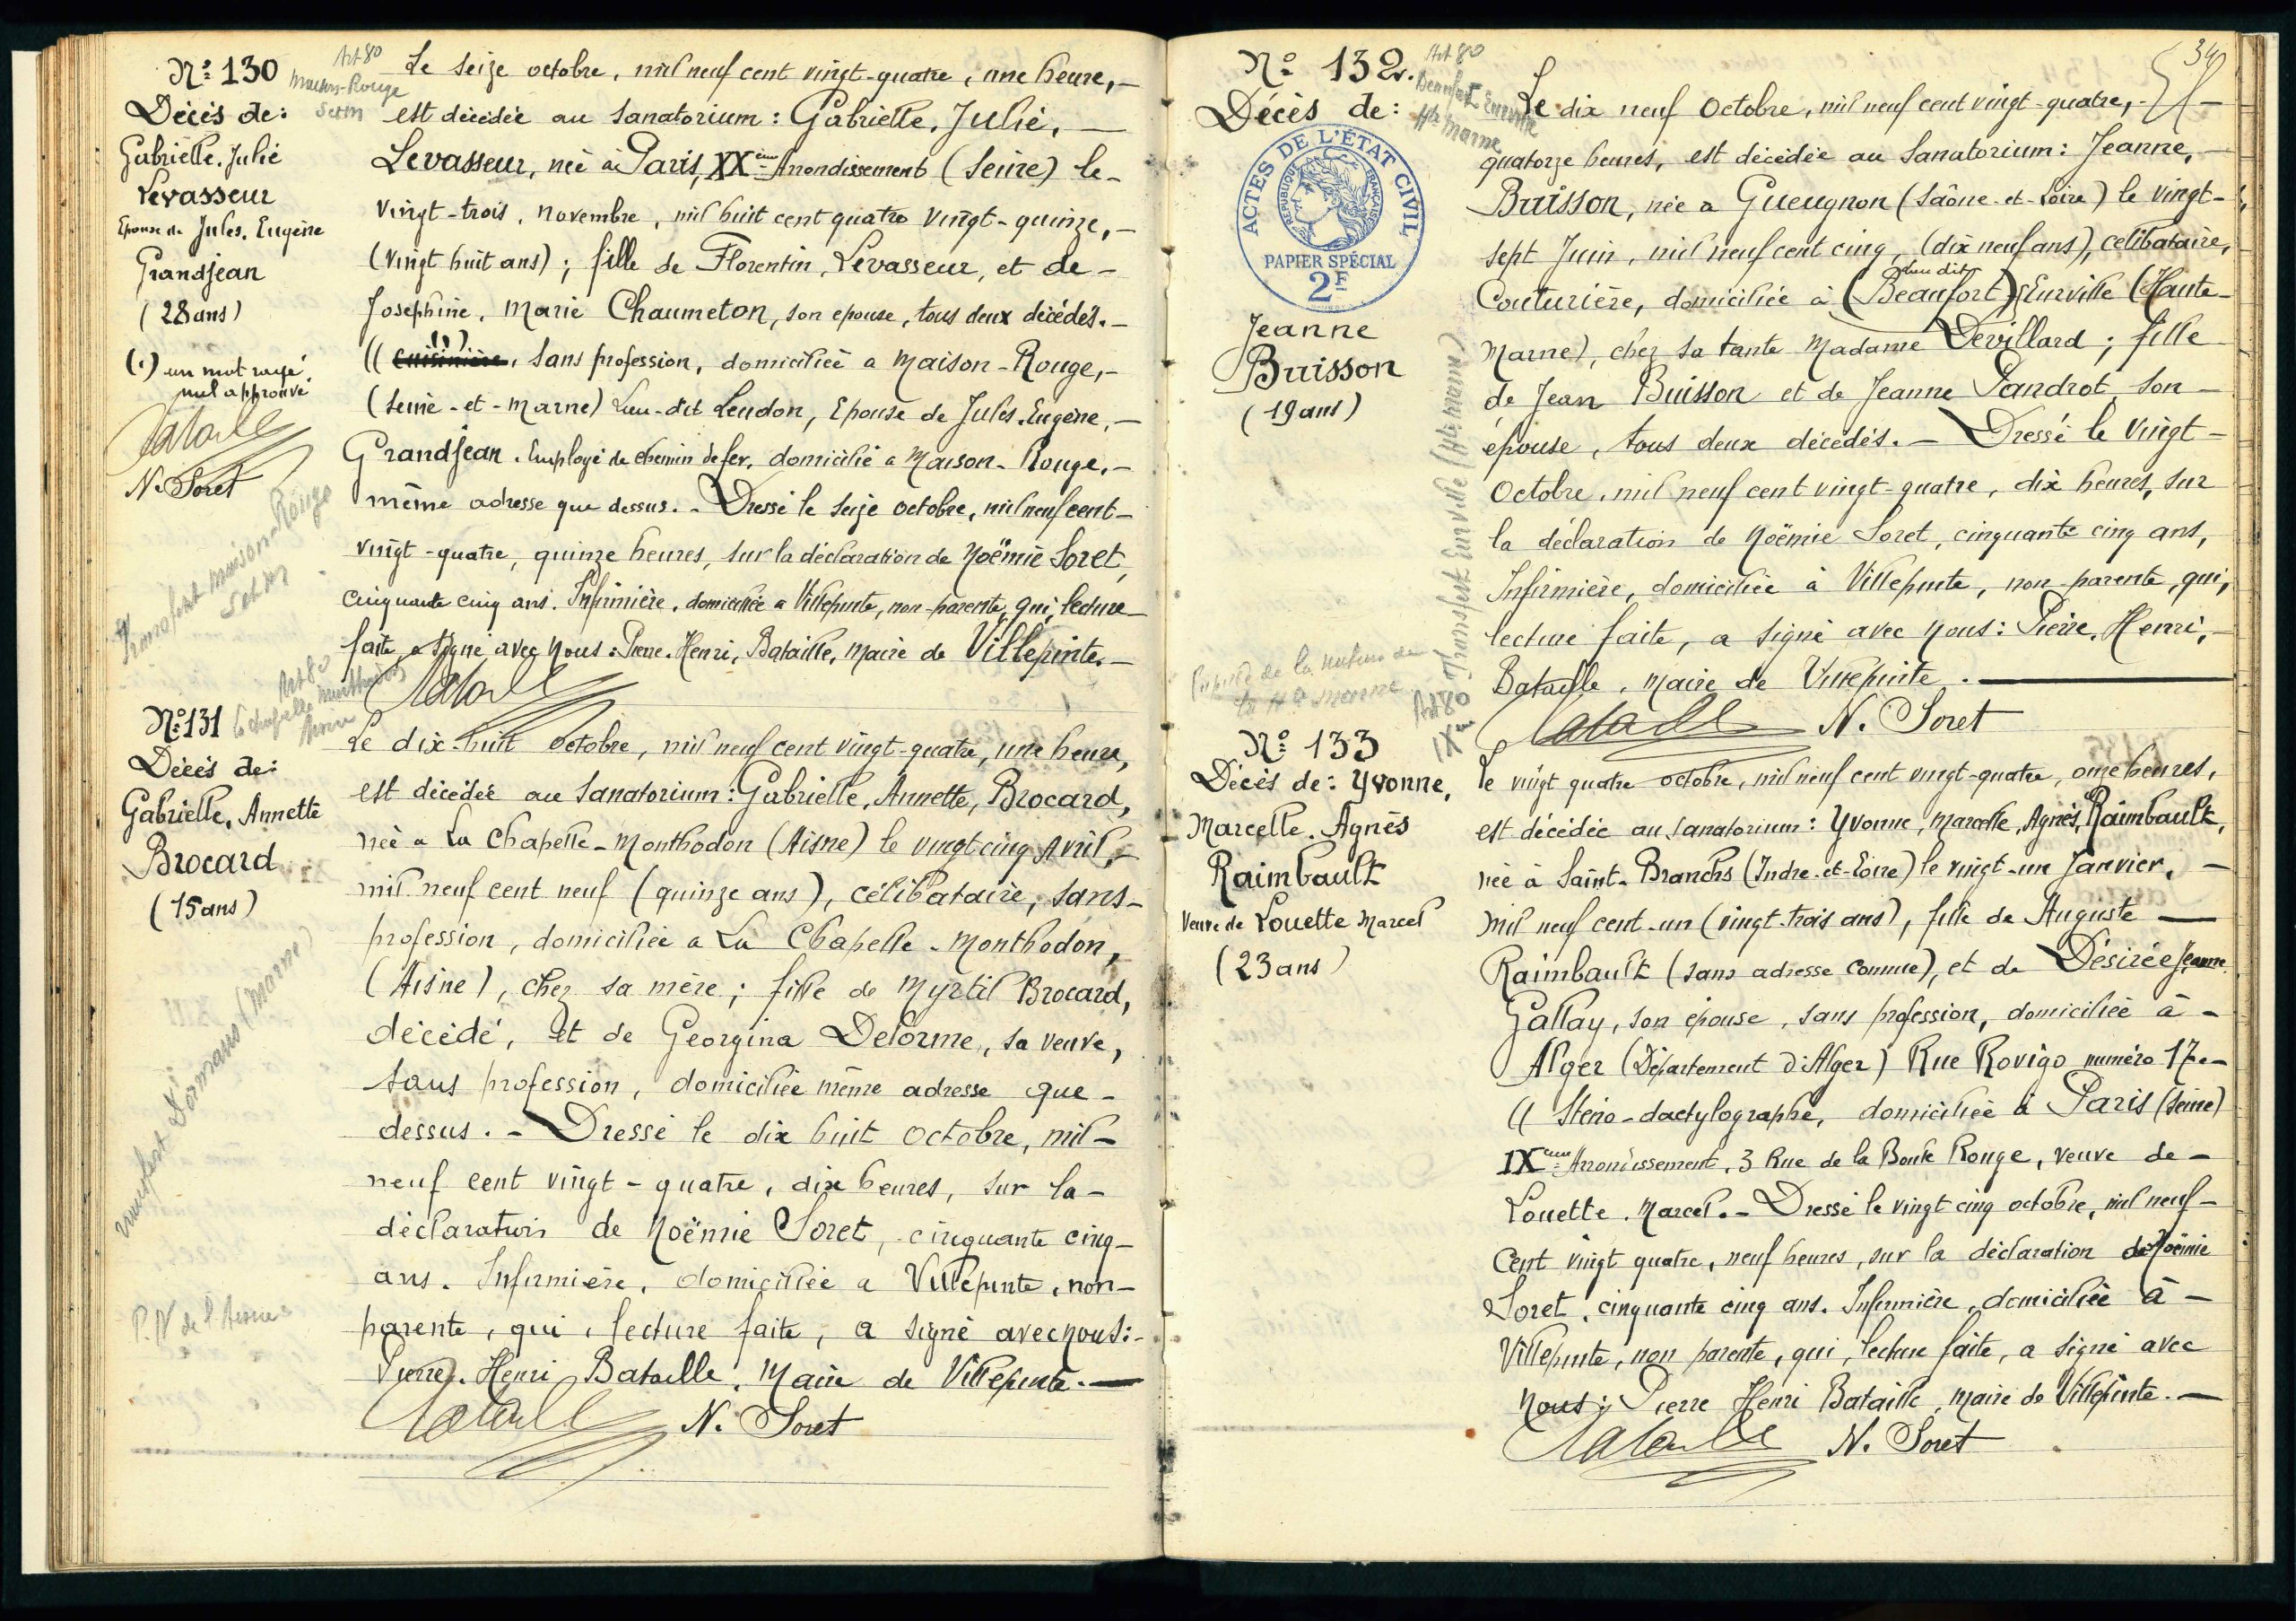 Nº 130
Art 80
Maison-Rouge
S et M
Décès de:
Gabrielle, Julie
Levasseur
Epouse de Jules, Eugène
Grandjean
(28 ans)
(1) un mot rayé
nul approuvé
Bataille
N. Soret
Transfert Maison-Rouge
S et M
Le seize octobre, mil neuf cent vingt-quatre, une heure, —
est décédée au sanatorium : Gabrielle, Julie, —
Levasseur, née à Paris, XXème Arrondissement (Seine) le -
vingt-trois, novembre, mil huit cent quatre vingt-quinze, —
(vingt huit ans) ; fille de Florentin, Levasseur, et de -
Joséphine, Marie Chaumeton, son epouse, tous deux décédés. —
(( cuisinière (1), sans profession, domiciliée a Maison-Rouge, -
(Seine-et-Marne) Lieu-dit Leudon, Epouse de Jules, Eugène, —
Grandjean. Employé de chemin de fer, domicilié a Maison-Rouge, -
même adresse que dessus. - Dressé le seize octobre, mil neuf cent -
vingt-quatre, quinze heures, sur la déclaration de Noëmie Soret,
cinquante cinq ans. Infirmière, domiciliée a Villepinte, non-parente, qui, lecture
faite, a signé avec Nous : Pierre, Henri, Bataille, Maire de Villepinte. —
Bataille
Nº 131
Art 80
la chapelle Monthodon
Aisne
Décès de:
Gabrielle, Annette
Brocard
(15 ans)
Transfert Dormans (Marne)
P.N de l'Aisne
Le dix-huit octobre, mil neuf cent vingt-quatre, une heure,
est décédée au Sanatorium : Gabrielle, Annette, Brocard,
née a La Chapelle-Monthodon (Aisne) le vingt cinq Avril, -
mil neuf cent neuf (quinze ans), célibataire, sans -
profession, domiciliée a La Chapelle-Monthodon,
(Aisne), chez sa mère ; fille de Myrtil Brocard,
décédé, et de Georgina Delorme, sa veuve,
sans profession, domiciliée même adresse que -
dessus. - Dressé le dix huit octobre, mil -
neuf cent vingt-quatre, dix heures, sur la -
déclaration de Noëmie Soret, cinquante cinq -
ans. Infirmière, domiciliée a Villepinte, non -
parente, qui, lecture faite, a signé avec nous : -
Pierre, Henri Bataille, Maire de Villepinte. —
Bataille N. Soret
34
Nº 132.
Art 80
Beaufort Eurville
Hte Marne
Décès de:
ACTES DE L'ÉTAT CIVIL
RÉPUBLIQUE FRANÇAISE
PAPIER SPÉCIAL
2F
Jeanne
Buisson
(19 ans)
Transfert Eurville (Hte Marne)
Pupille de la nation de
la Hte Marne
Le dix neuf octobre, mil neuf cent vingt-quatre, -
quatorze heures, est décédée au Sanatorium : Jeanne, -
Buisson, née a Gueugnon (Saône-et-Loire) le vingt -
sept Juin, mil neuf cent cinq, (dix neuf ans), célibataire,
Couturière, domiciliée à (lieu dit Beaufort) Eurville (Haute -
Marne), chez sa tante Madame Devillard ; fille
de Jean Buisson et de Jeanne Pandrot, son -
épouse, tous deux décédés. - Dressé le vingt -
octobre, mil neuf cent vingt-quatre, dix heures, sur
la déclaration de Noëmie Soret, cinquante cinq ans,
Infirmière, domiciliée à Villepinte, non-parente, qui,
lecture faite, a signé avec Nous : Pierre, Henri, -
Bataille, Maire de Villepinte. —
Bataille N. Soret
Nº 133
Art 80
IXème
Décès de : Yvonne,
Marcelle, Agnès
Raimbault
Veuve de Louette Marcel
(23 ans)
Le vingt quatre octobre, mil neuf cent vingt-quatre, onze heures,
est décédée au sanatorium : Yvonne, Marcelle, Agnès, Raimbault,
née à Saint-Branchs (Indre-et-Loire) le vingt-un Janvier, —
mil neuf cent-un (vingt-trois ans), fille de Auguste —
Raimbault (sans adresse connue), et de Désirée Jeanne
Gallay, son épouse, sans profession, domiciliée à -
Alger (Département d'Alger) Rue Rovigo numéro 17. -
(( Sténo-dactylographe, domiciliée à Paris (Seine)
IXème Arrondissement, 3 Rue de la Boule Rouge, veuve de -
Louette, Marcel. - Dressé le vingt cinq octobre, mil neuf -
cent vingt quatre, neuf heures, sur la déclaration de Noëmie
Soret, cinquante cinq ans. Infirmière, domiciliée à -
Villepinte, non parente, qui, lecture faite, a signé avec
Nous : Pierre Henri Bataille, Maire de Villepinte. —
Bataille N. Soret